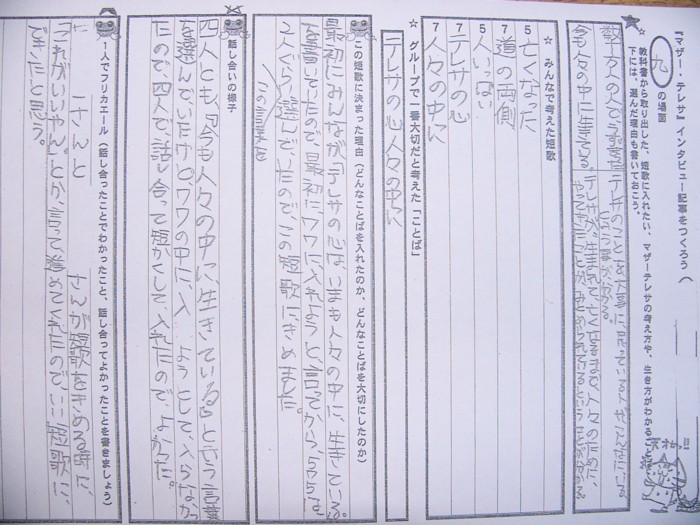 「マザー・テレサ」インタビュー記事をつくろう（
九 の場面
☆ 教科書から取り出した、短歌に入れたい、マザーテレサの考え方や、生き方がわかることば
下には、選んだ理由も書いておこう。
今も人々の中に生きてる。
天才かっ!!
☆ みんなで考えた短歌
5 亡くなった
7 道の両側
5 人いっぱい
7 テレサの心
7 人々の中に
☆ グループで一番大切だと考えた「ことば」
テレサの心人々の中に
この短歌に決まった理由（どんなことばを入れたのか、どんなことばを大切にしたのか）
最初にみんなが「テレサの心は、いまも人々の中に、生きている。」
を書いていたので、最初に、77に入れようと、言ってから、
2人ぐらい選んでいたので、この短歌にきめました。
この言葉を
話し合いの様子
四人とも、「今も人々の中に、生きている。」と言う言葉
を選んでいたけど、77の中に、入 ようとして、入らなかっ
たので、四人で、話し合って短かくして、入れたので、よかった。
1人でフリカエール（話し合ったことでわかったこと、話し合ってよかったことを書きましょう）
さんと さんが短歌をきめる時に、
「これがいいやん。」とか、言って進めてくれたので、いい短歌に、
できたと思う。